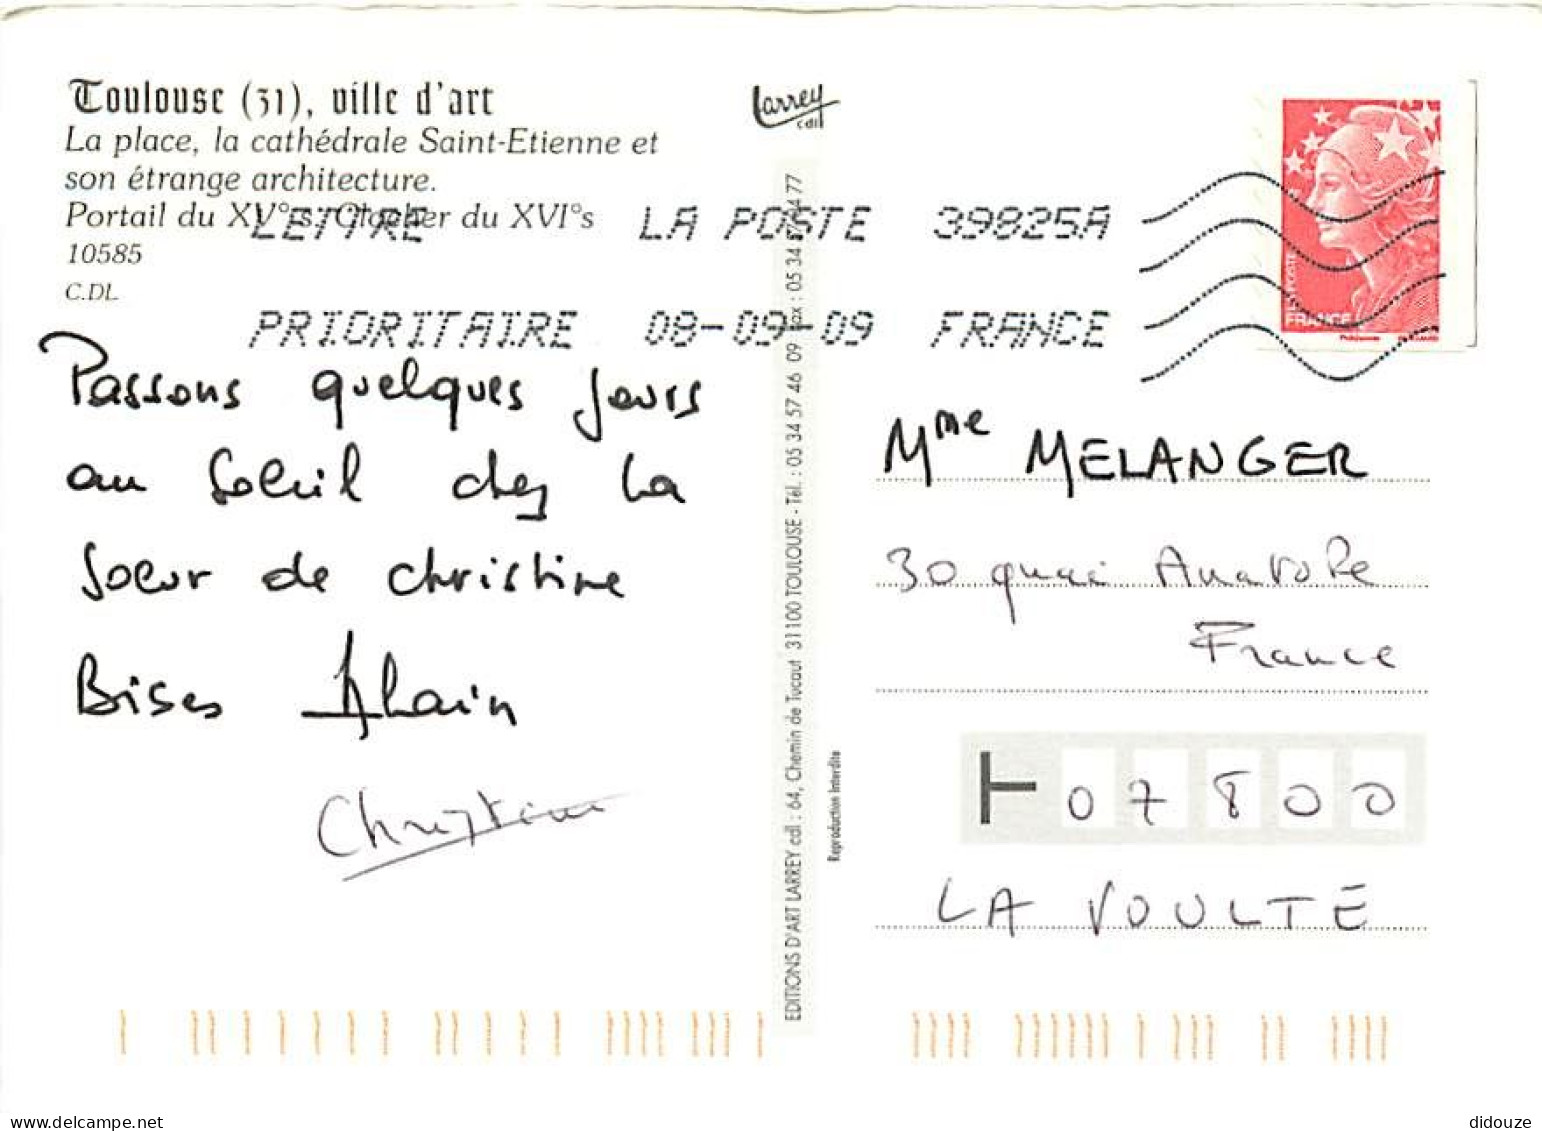 Toulouse (31), ville d'art
La place, la cathédrale Saint-Etienne et
son étrange architecture.
Portail du XV°s, Clocher du XVI°s
10585
C.DL
Larrey
cdl
LETTRE LA POSTE 39825A
PRIORITAIRE 08-09-09 FRANCE
LA POSTE
FRANCE
Passons quelques jours
au soleil chez la
soeur de christine
Bises Alain
Christine
EDITIONS D'ART LARREY cdl : 64, Chemin de Tucaut 31100 TOULOUSE - Tél. : 05 34 57 46 09 Fax : 05 34 57 44 77
Reproduction Interdite
Mme MELANGER
30 quai Anatole
France
07800
LA VOULTE
didouze
delcampe.net